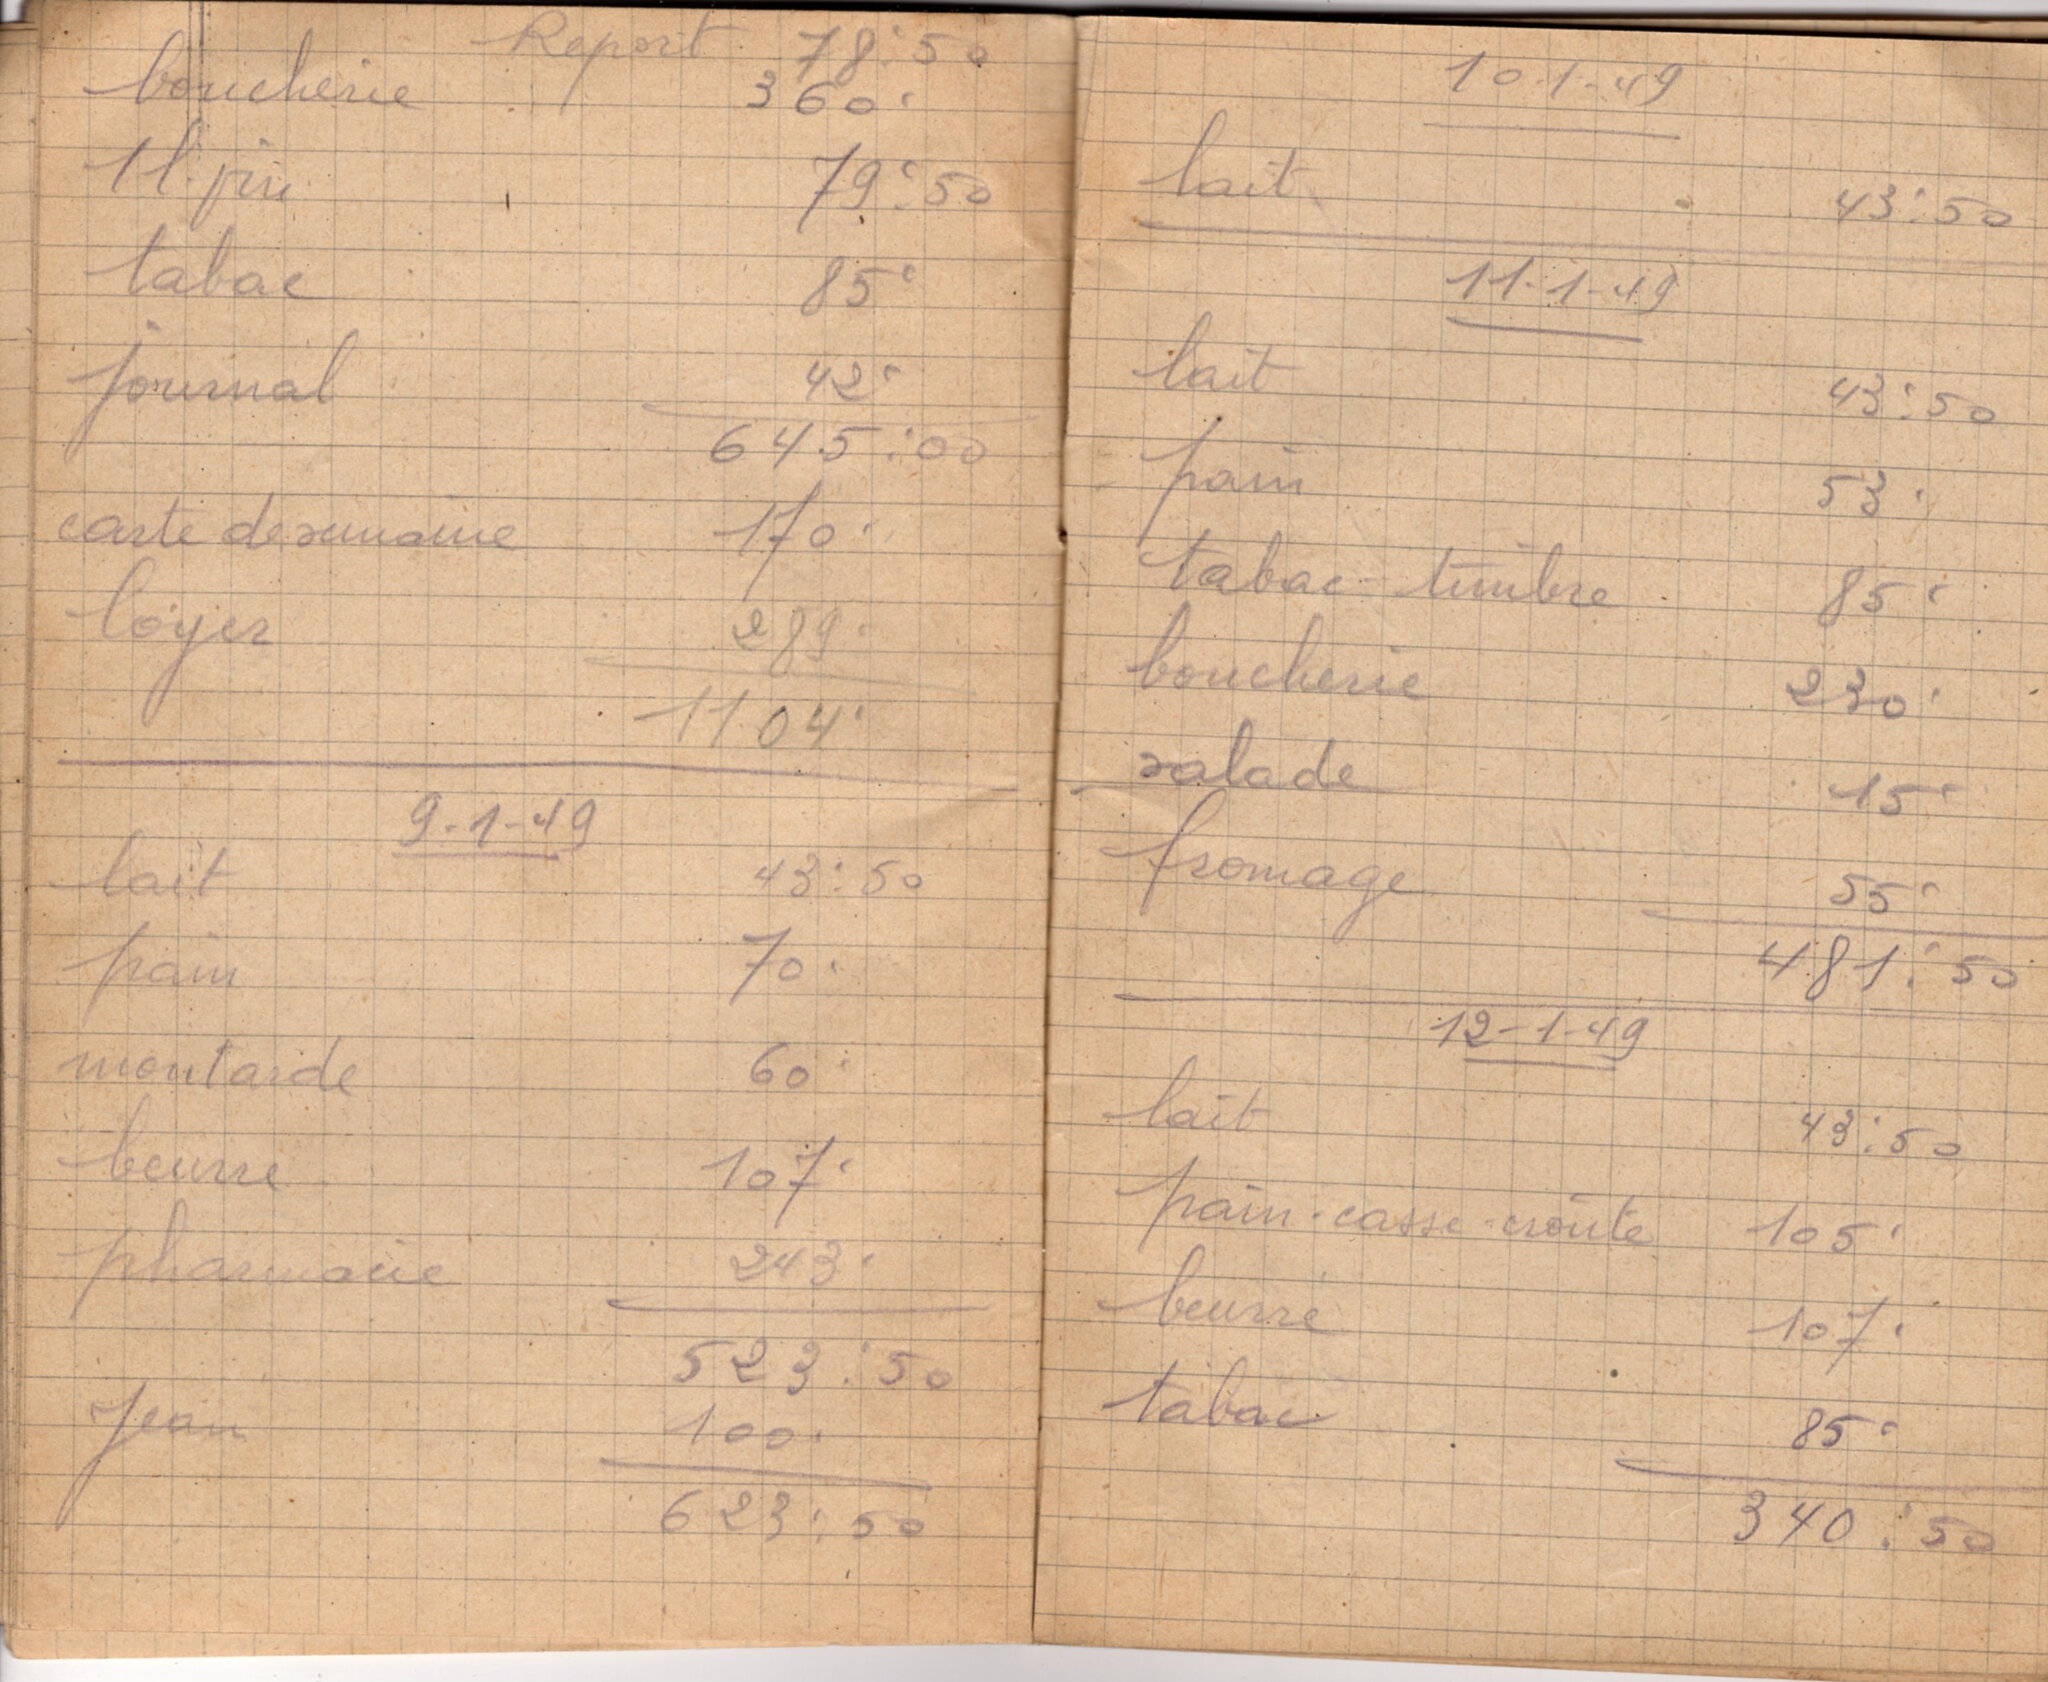 Report 78:50
boucherie 360.
1 l. vin 79:50
tabac 85.
journal 42.
645:00
carte de semaine 170.
loyer 289.
1104.
9-1-49
lait 43:50
pain 70.
moutarde 60.
beurre 107.
pharmacie 243.
523:50
Jean 100.
623:50
10-1-49
lait 43:50
11-1-49
lait 43:50
pain 53.
tabac - timbre 85.
boucherie 230.
salade 15.
fromage 55.
481:50
12-1-49
lait 43:50
pain - casse-croûte 105.
beurre 107.
tabac 85.
340:50